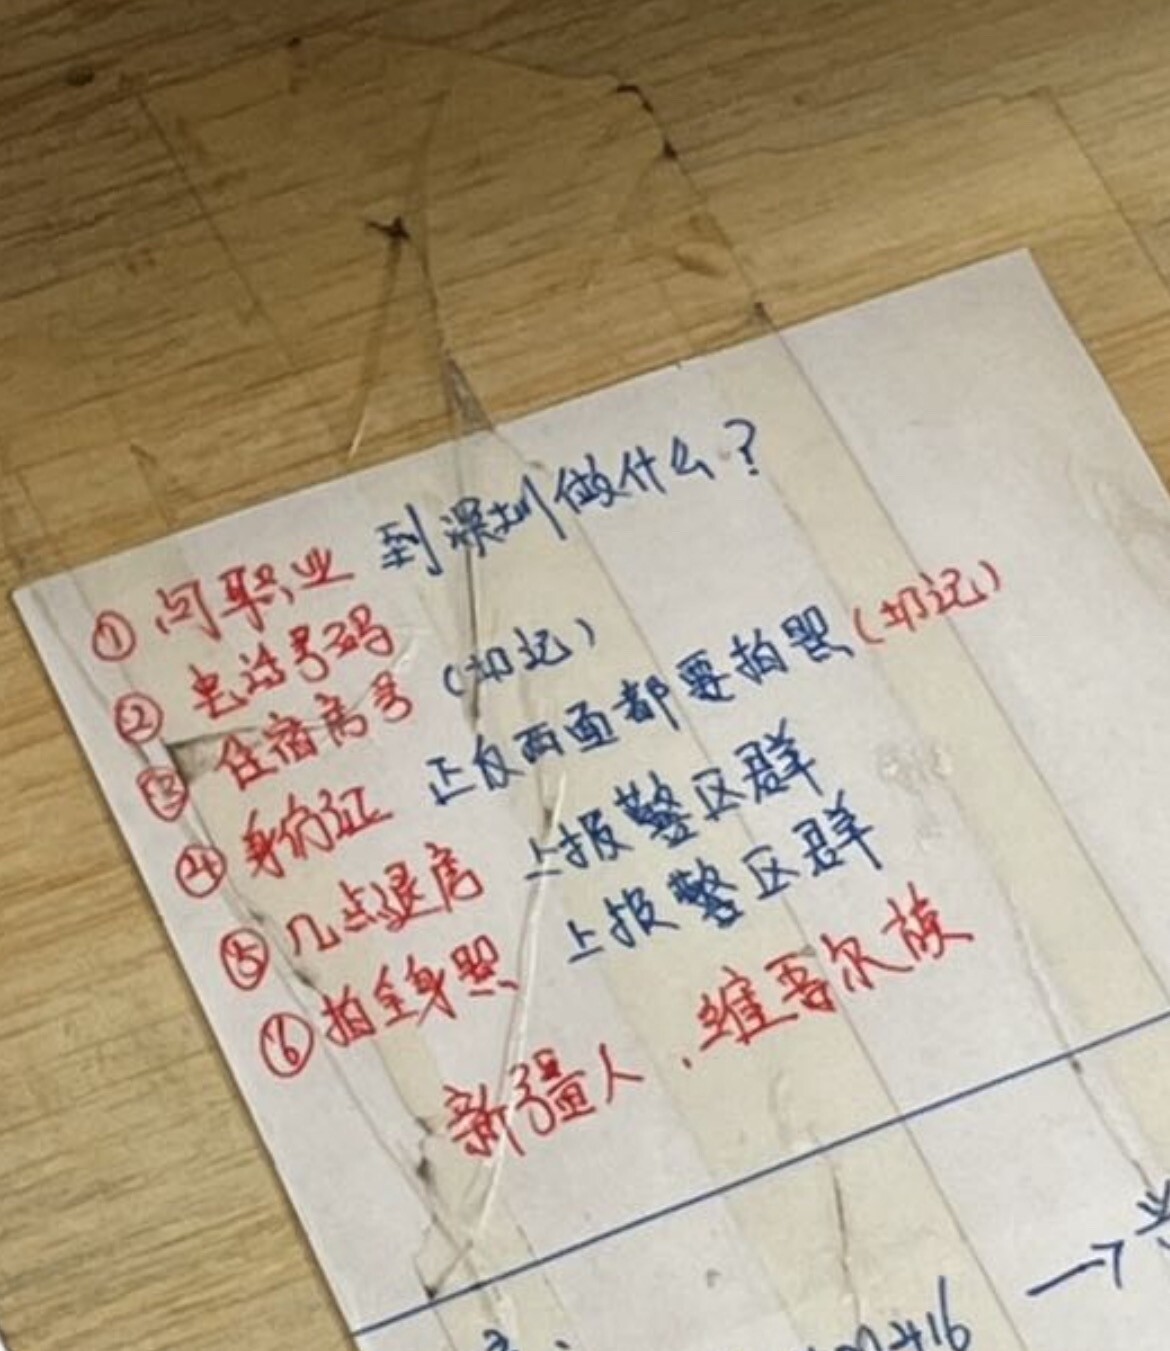 ① 问职业 到深圳做什么?
② 电话号码
③ 住宿房号 (切记)
④ 身份证 正反两面都要拍照(切记)
⑤ 几点退房 上报警区群
⑥ 拍全身照 上报警区群
新疆人、维吾尔族
416